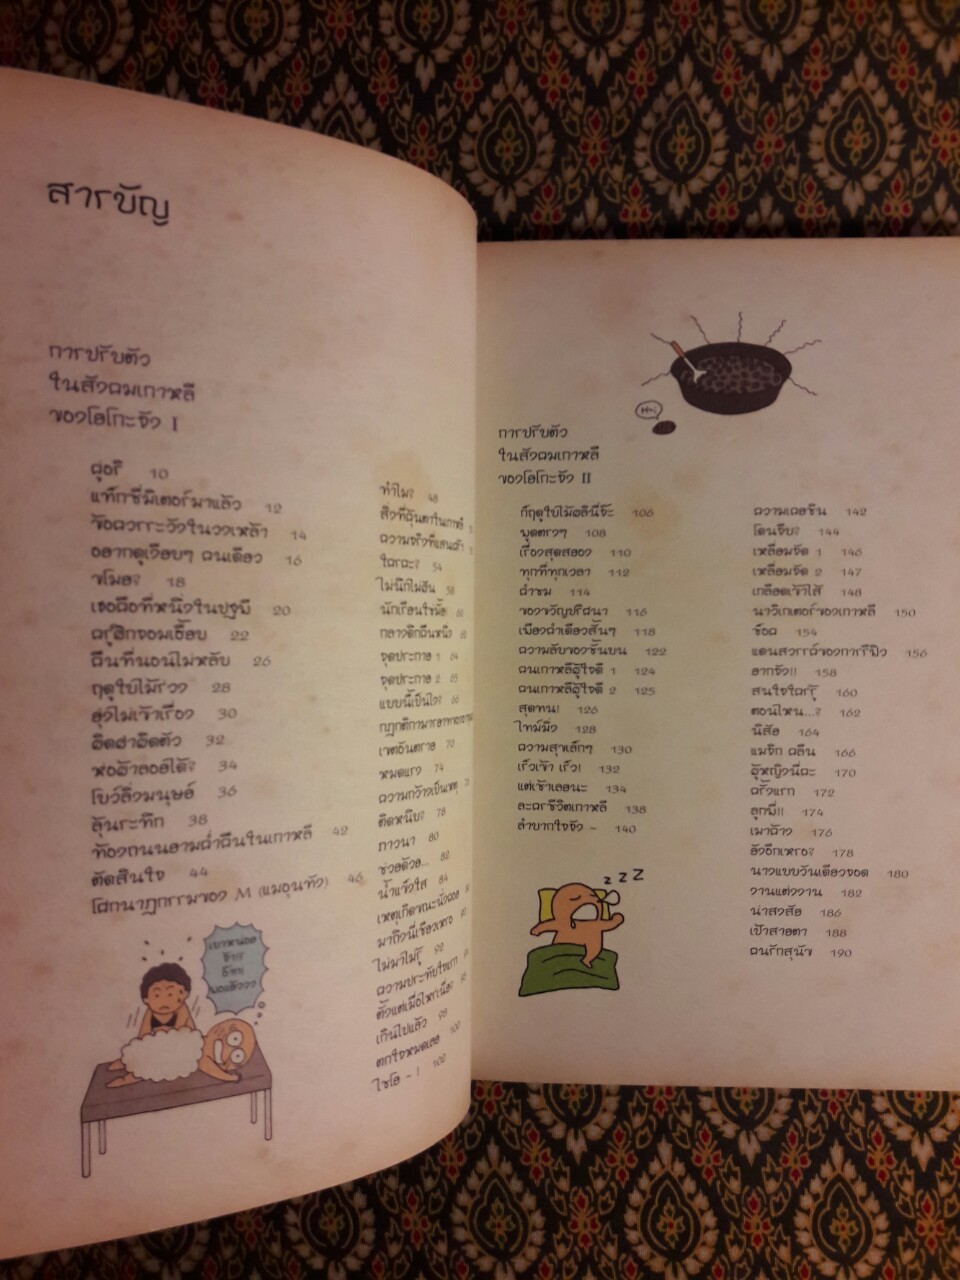 สารบัญ
การปรับตัว
ในสังคมเกาหลี
ของโฮโกะจัง I
คุอรี 10
แท็กซี่มิเตอร์มาแล้ว 12
ข้อควรระวังในวงเหล้า 14
อยากดูเงียบๆ คนเดียว 16
ขโมย? 18
เธอคือที่หนึ่งในปฐพี 20
ครูฮึกจอมเฮี้ยบ 22
คืนที่นอนไม่หลับ 26
ฤดูใบไม้ร่วง 28
ยุ่งไม่เข้าเรื่อง 30
ยืดฮายึดตัว 32
หอย้าลอยได้? 34
โบว์ลิ่งมนุษย์ 36
ลุ้นระทึก 38
ท้องถนนยามค่ำคืนในเกาหลี 42
ตัดสินใจ 44
โศกนาฏกรรมของ M (แมอุนทัง) 46
ทำไม? 48
สิ่งที่คุ้นตาในเกาหลี
ความจริงที่แสนเศร้า
ใครคะ? 54
ไม่นึกไม่ฝัน 58
นักเรียนใช่มั้ย 60
กลางดึกคืนหนึ่ง 62
จุดประกาย 1 64
จุดประกาย 2 65
แบบนี้เป็นไง? 66
เขตอันตราย 70
หมดแรง 74
ความกว้างเป็นเหตุ
ติดหนึบ? 78
ภาวนา 80
ช่วยด้วย... 82
น้ำแข็งใส 84
เหตุเกิดขณะนั่งคอย
มาถึงนี่เชียวเหรอ 90
ไม่มาไม่รู้ 92
ความประทับใจแรก
ตั้งแต่เมื่อไหร่เนี่ย?
เกินไปแล้ว 98
ตกใจหมดเลย 100
ไชโย ~ ! 102
เบาหน่อย
พอแล้ววว
Hi
การปรับตัว
ในสังคมเกาหลี
ของโฮโกะจัง II
ก็ฤดูใบไม้ผลินี่จ๊ะ 106
พูดตรงๆ 108
เรื่องสุดสยอง 110
ทุกที่ทุกเวลา 112
คำชม 114
ของขวัญปริศนา 116
เพียงคำเดียวสั้นๆ 118
ความลับของชั้นบน 122
คนเกาหลีผู้ใจดี 1 124
คนเกาหลีผู้ใจดี 2 125
สุดทน! 126
ไทม์มิ่ง 128
ความสุขเล็กๆ 130
เร็วเข้า เร็ว! 132
แต่เช้าเลยนะ 134
ละครชีวิตเกาหลี 138
ลำบากใจจัง ~ 140
ความเคยชิน 142
โดนจีบ? 144
เหลือมจัด 1 146
เหลือมจัด 2 147
เกลือดเข้าไส้ 148
นาวิเกเตอร์ของเกาหลี 150
ช็อค 154
แดนสวรรค์ของการ์ปิง 156
ฮากจัง!! 158
สนใจใคร่รู้ 160
ตอนไหน...? 162
นิสัย 164
แมจิก คลีน 166
ผู้หญิงนี่คะ 170
ครั้งแรก 172
ลูกพี่!! 174
เมาค้าง 176
ยังอีกเหรอ? 178
นางแบบวันเดียวจอด 180
งานแต่งงาน 182
น่าสงสัย 186
เป้าสายตา 188
คนรักสุนัข 190
z z Z